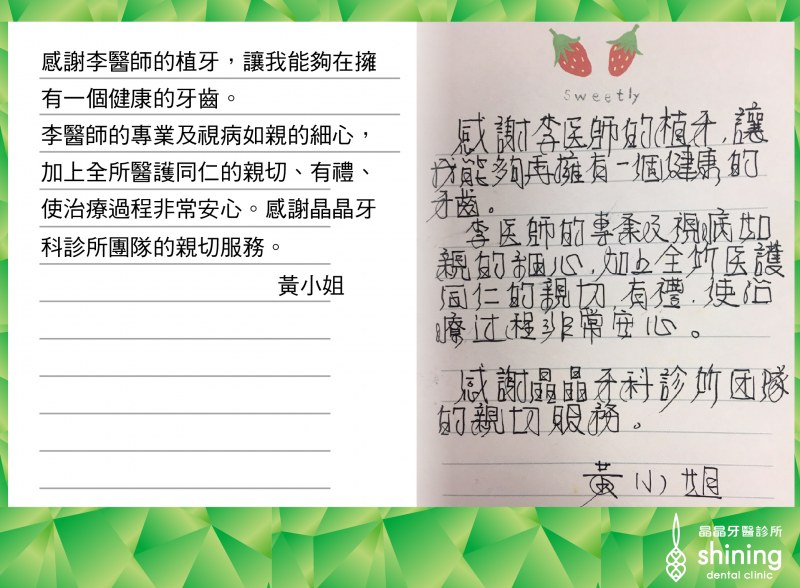 感謝李醫師的植牙，讓我能夠在擁
有一個健康的牙齒。
李醫師的專業及視病如親的細心，
加上全所醫護同仁的親切、有禮、
使治療過程非常安心。感謝晶晶牙
科診所團隊的親切服務。
黃小姐
Sweetly
感謝李医師的植牙，讓
我能夠再擁有一個健康的
牙齒。
李医師的專業及視病如
親的細心，加上全所医護
同仁的親切，有禮，使治
療过程非常安心。
感謝晶晶牙科診所团隊
的親切服務。
黃小姐
晶晶牙醫診所
shining
dental clinic